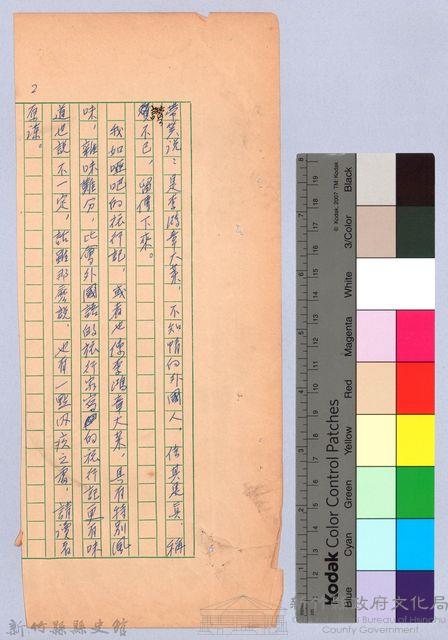 2
帶笑說：是李鴻章大菜，不知情的外國人，信其是真，稱
讚不已，留傳下來。
我如啞吧的旅行記，或者也像李鴻章大菜，具有特別風
味，雜味難分，比會外國語的旅行家寫的旅行記更有味
道也說不一定，話雖那麼說，也有一點內疚之處，請讀者
原諒。
Kodak Color Control Patches
© Kodak, 2007 TM: Kodak
Blue
Cyan
Green
Yellow
Red
Magenta
White
3/Color
Black
新竹縣縣史館
政府文化局
County Government